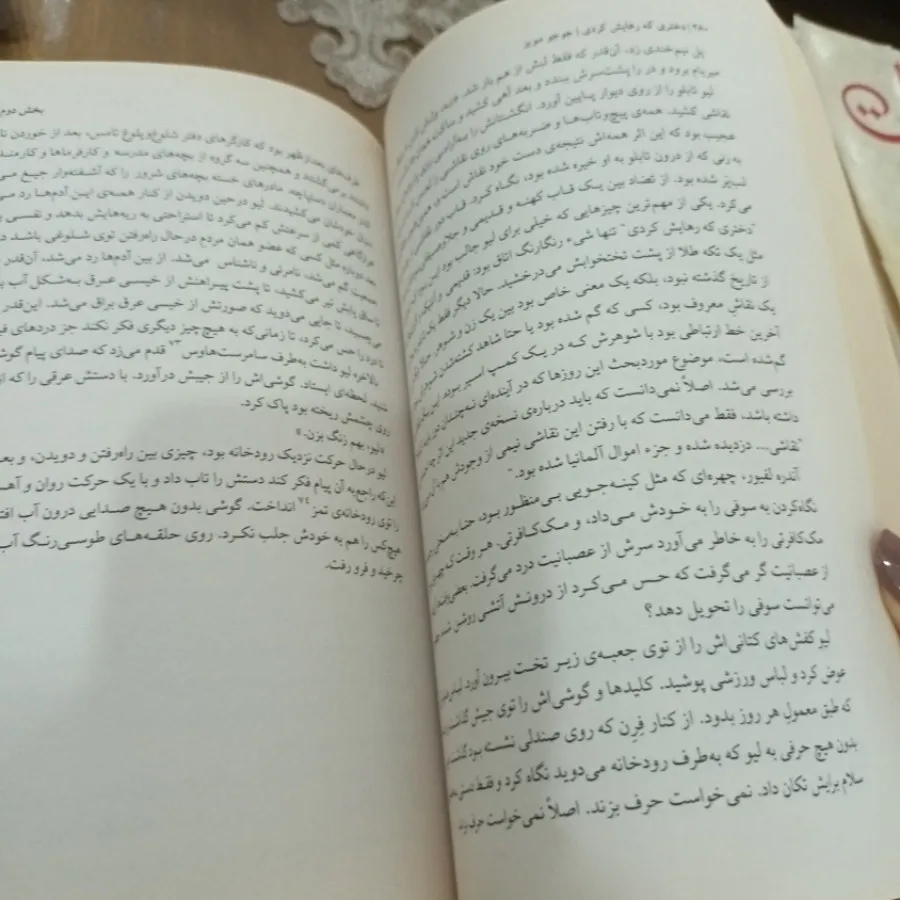 ۳۸۰ | دختری که رهایش کردی | جوجو مویز
پل نیم‌خندی زد، آن‌قدر که فقط لبش از هم باز شد.
میریام برود و در را پشت‌سرش ببندد و بعد آهی کشید و
لیو تابلو را از روی دیوار پایین آورد. انگشتانش را
نقاشی کشید. همه‌ی پیچ‌وتاب‌ها و ضربه‌های روی نقاشی را
عجیب بود که این اثر همه‌اش نتیجه‌ی دست خود نقاش است
به زنی که از درون تابلو به او خیره شده بود، نگاه کرد. قاب
لب‌پَر شده بود. از تضاد بین یک قاب کهنه و قدیمی و
می‌کرد. یکی از مهم‌ترین چیزهایی که خیلی برای لیو جالب بود این بود
"دختری که رهایش کردی" تنها شیء رنگارنگ اتاق بود: قدیمی و آنتیک
مثل یک تکه طلا از پشت تختخوابش می‌درخشید. حالا دیگر فقط یک
از تاریخ گذشته نبود، بلکه یک معنی خاص بود بین یک زن و شوهر
یک نقاش معروف بود، کسی که گم شده بود یا حتا شاهد کشته‌شدن
آخرین خط ارتباطی بود با شوهرش که در یک کمپ اسیر بود. این
گم‌شده است، موضوع موردبحث این روزها که در آینده‌ای نه‌چندان دور
بررسی می‌شد. اصلاً نمی‌دانست که باید درباره‌ی نسخه‌ی جدید این اثر چه
داشته باشد، فقط می‌دانست که با رفتن این نقاشی نیمی از وجودش هم
"نقاشی... دزدیده شده و جزء اموال آلمانیا شده بود."
آندره لفیور، چهره‌ای که مثل کینه‌جویی بی‌منظور بود، حتا
نگاه‌کردن به سوفی را به خودش می‌داد، و مک‌کافرتی. هر وقت که
مک‌کافرتی را به خاطر می‌آورد سرش از عصبانیت درد می‌گرفت. بعضی
از عصبانیت گُر می‌گرفت که حس می‌کرد از درونش آتشی روشن شده
می‌توانست سوفی را تحویل دهد؟
لیو کفش‌های کتانی‌اش را از توی جعبه‌ی زیر تخت بیرون آورد. لباس
عوض کرد و لباس ورزشی پوشید. کلیدها و گوشی‌اش را توی جیبش گذاشت
که طبق معمولِ هر روز بدود. از کنار فِرِن که روی صندلی نشسته بود گذشت
بدون هیچ حرفی به لیو که به‌طرف رودخانه می‌دوید نگاه کرد و فقط دستش
سلام برایش تکان داد. نمی‌خواست حرف بزند. اصلاً نمی‌خواست حرف
بخش دوم
طرف‌های بعدازظهر بود که کارگرهای دفتر شلوغ‌پلوغ تامس، بعد از خوردن
برمی‌گشتند و همچنین سه گروه از بچه‌های مدرسه و کارفرماها و
دستپاچه. مادرهای خسته بچه‌های شرور را که آشفته‌وار جیغ
می‌کشیدند. لیو در حین دویدن از کنار همه‌ی این آدم‌ها رد
کمی از سرعتش کم می‌کرد تا استراحتی به ریه‌هایش بدهد و نفسی
دوباره مثل کسی که عضو همان مردم درحال راه‌رفتن توی شلوغی باشد
جمعیت گم می‌شد، نامرئی و ناشناس می‌شد. از بین آدم‌ها رد می‌شد، آن‌قدر
ساق پایش تیر می‌کشید، تا پشت پیراهنش از خیسی عرق به‌شکل آب
می‌چسبید، تا جایی می‌دوید که صورتش از خیسی عرق براق می‌شد. این‌قدر
تا درد را حس می‌کرد، تا زمانی‌که به هیچ‌چیز دیگری فکر نکند جز دردهای
بالاخره لیو داشت به‌طرف سامرست‌هاوس ۷۳ قدم می‌زد که صدای پیام
شنید. لحظه‌ای ایستاد. گوشی‌اش را از جیبش درآورد. با دستش عرقی را که از
روی چشمش ریخته بود پاک کرد.
«لیو، بهم زنگ بزن.»
لیو درحال حرکت نزدیک رودخانه بود، چیزی بین راه‌رفتن و دویدن، و بعد
این‌که راجع‌به آن پیام فکر کند دستش را تاب داد و با یک حرکت روان و
را توی رودخانه‌ی تمز ۷۴ انداخت. گوشی بدون هیچ صدایی درون آب
هیچ‌کس را هم به خودش جلب نکرد. روی حلقه‌های طوسی‌رنگ آب
چرخید و فرو رفت.